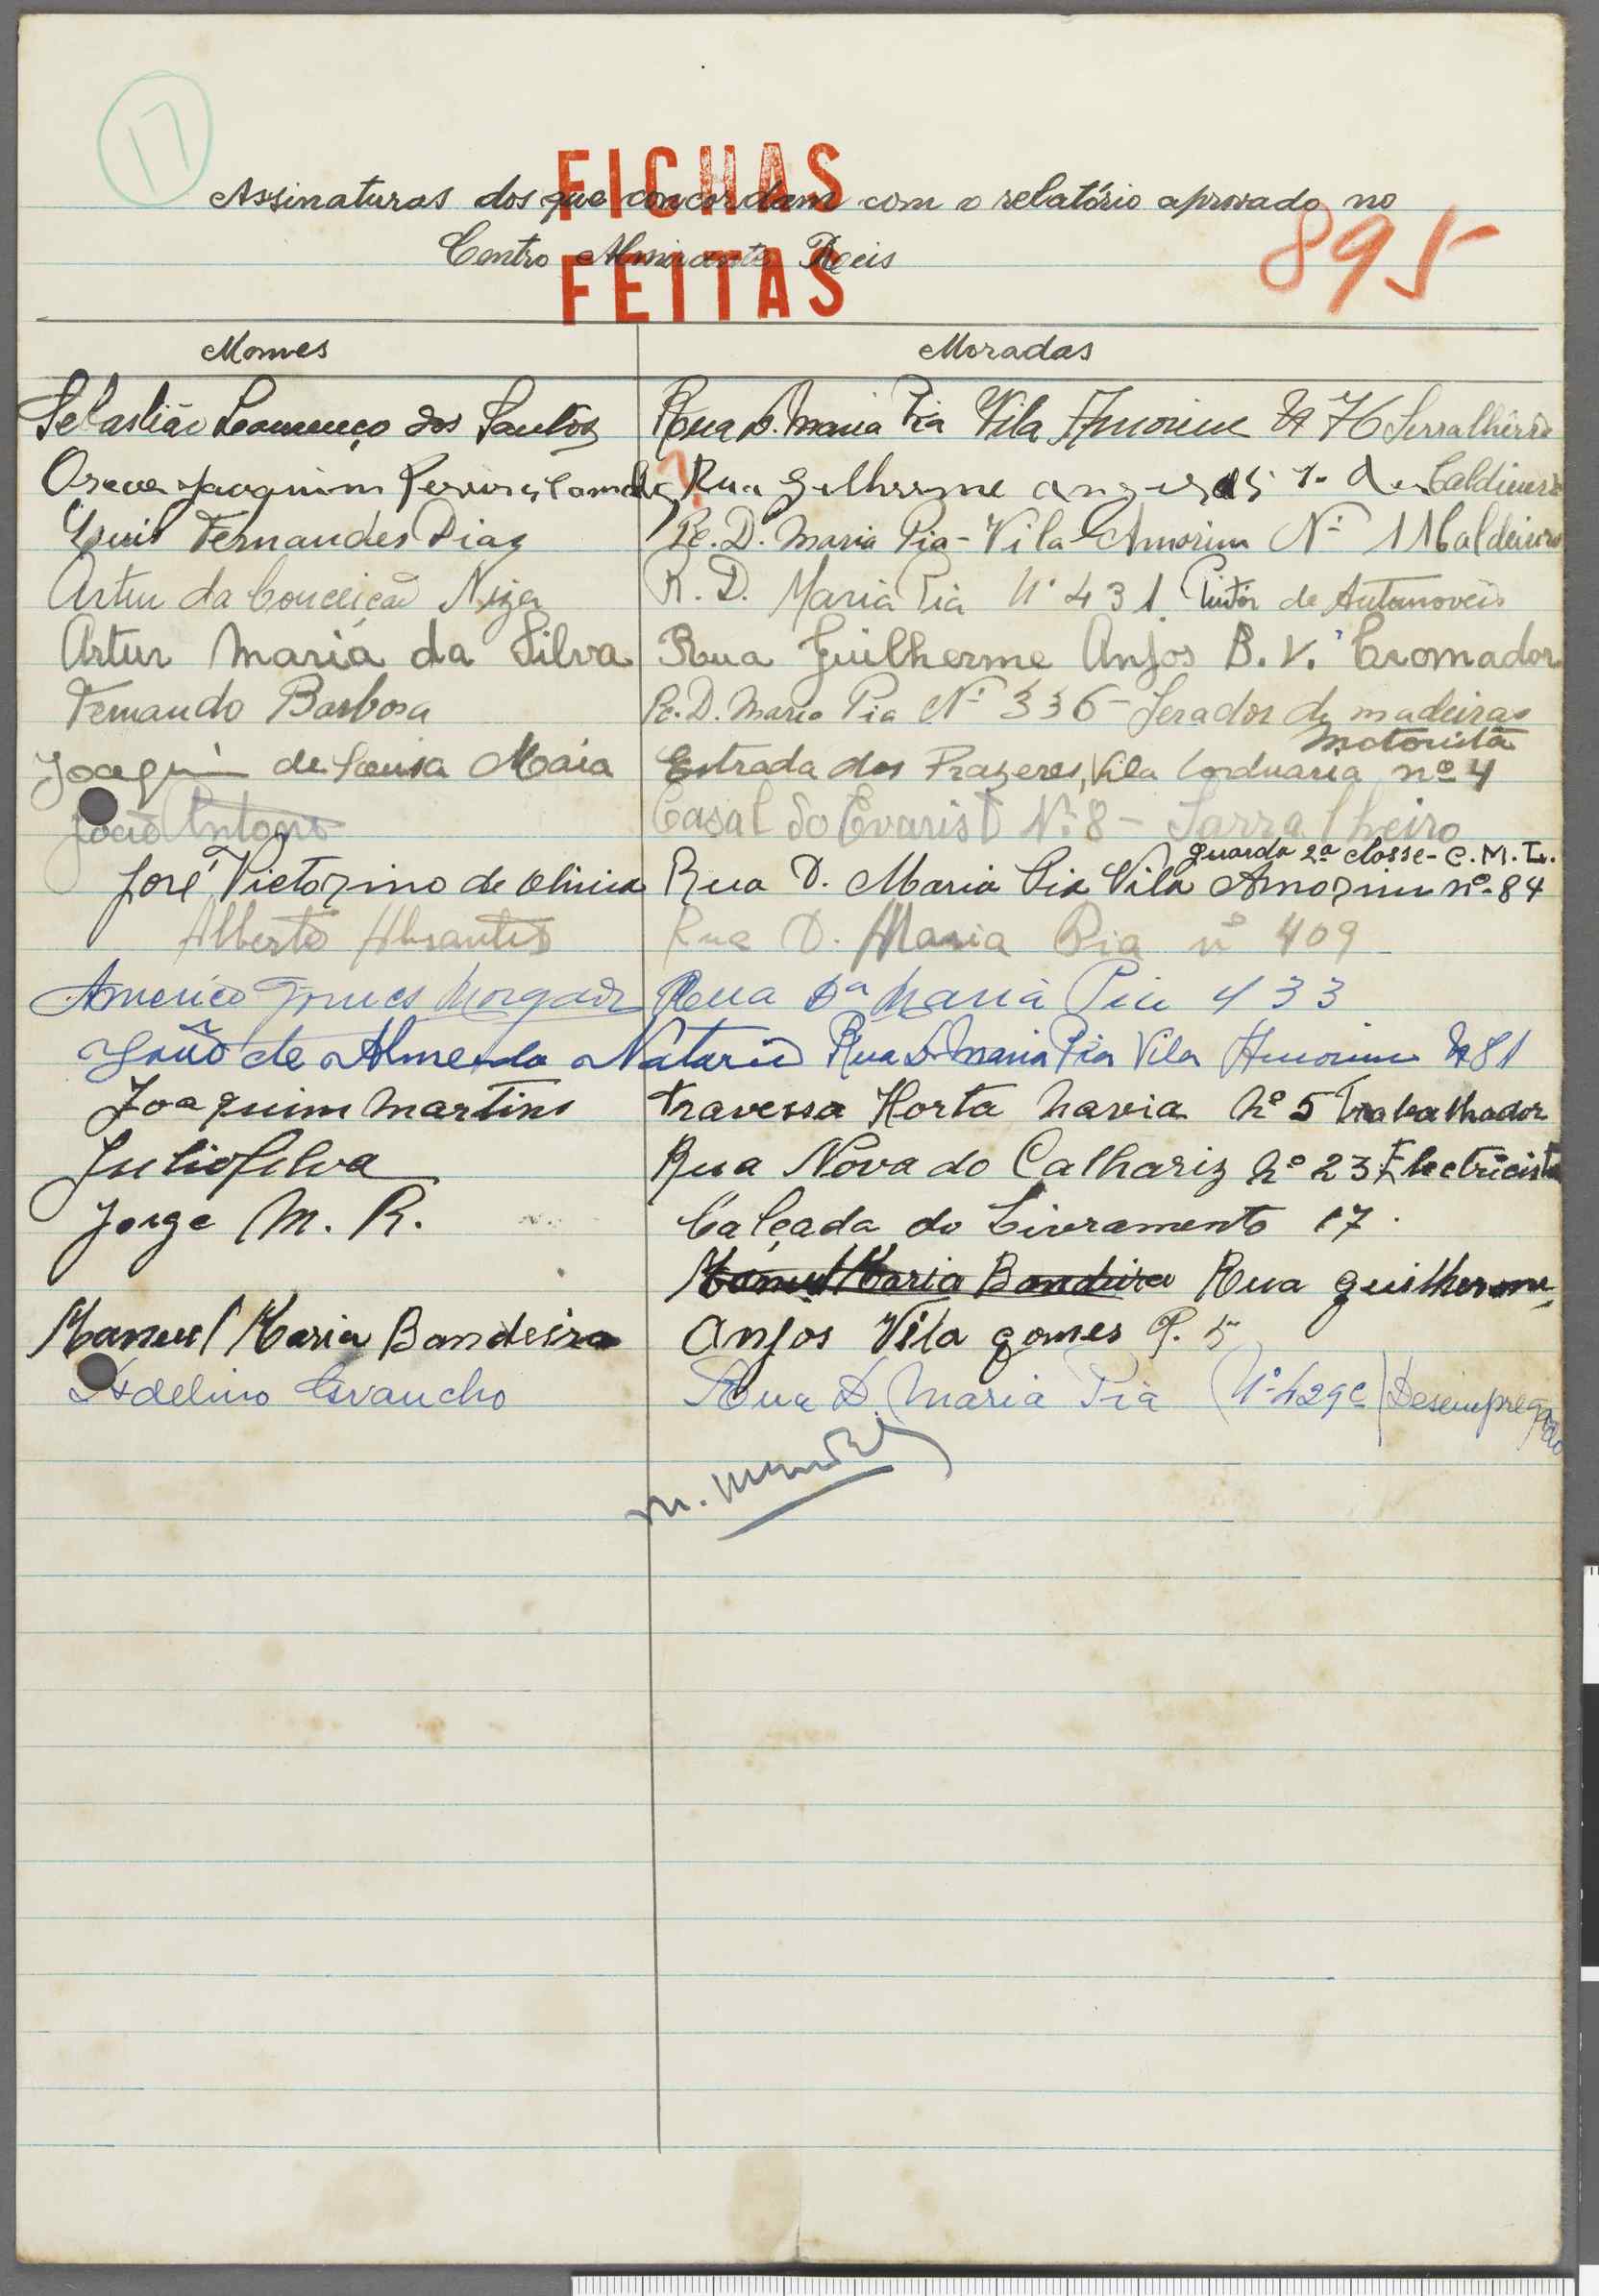 17
FICHAS
Assinaturas dos que concordam com o relatório aprovado no
Centro Almirante Reis
FEITAS
895
Nomes Moradas
Sebastião Lourenço dos Santos Rua D. Maria Pia Vila Amorim Nº 76 Serralheiro
Joaquim Rua Gilherme
Luis Fernandes Diaz R. D. Maria Pia - Vila Amorim Nº 11 Caldeireiro
Artur da Conceição Niza R. D. Maria Pia Nº 431 Pintor de Automoveis
Artur Maria da Silva Rua Guilherme Anjos B. V. Cromador
Fernando Barbosa R. D. Maria Pia Nº 336 - Serador de madeiras
motorista
Joaquim de Sousa Maia Estrada dos Prazeres, Vila Corduaria nº 4
João Antonio Casal do Evaristo Nº 8 - Sarralheiro
guarda 2ª classe - C. M. L.
José Victorino de Oliveira Rua D. Maria Pia Vila Amorim nº 84
Alberto Abrantes Rua D. Maria Pia nº 409
Americo Gomes Morgado Rua Dª Maria Pia 433
João de Almeida Natario Rua D. Maria Pia Vila Amorim Nº 81
Joaquim Martins Travessa Horta Navia Nº 5 Trabalhador
Julio Silva Rua Nova do Calhariz Nº 23 Electricista
Jorge M. R. Calçada do Livramento 17.
Manuel Maria Bandeira Rua Guilherme
Manuel Maria Bandeira Anjos Vila Gomes P. 5
Adelino Rua D. Maria Pia (Nº 429 C) Desempregado
M. Mendes